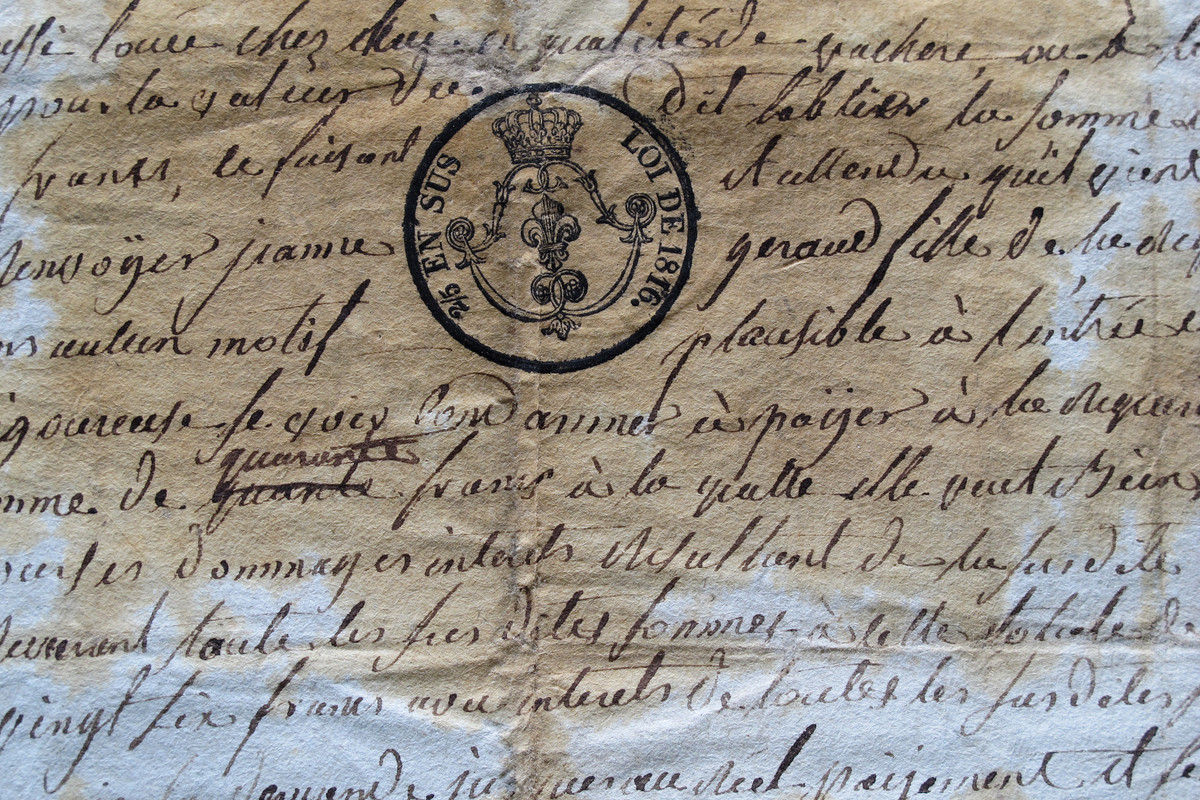 aussi louée chez lui en qualité de vachere, ou à
pour la valeur du dit tablier la somme
frants, le faisant et attendu qu'il vient
Renvoÿer jeanne geraud fille de la
sans aucun motif plausible à l'entrée
se voir condamner à paÿer à la
somme de quarante quante frans à la quelle elle veut Bien
ses dommages interets resultant de la susdite
toute les sus dites sommes à cette totale de
vingt six frans avec interets de toutes les sus dites
la demande jusqu'au reel paijement et
2/5 EN SUS
LOI DE 1816.